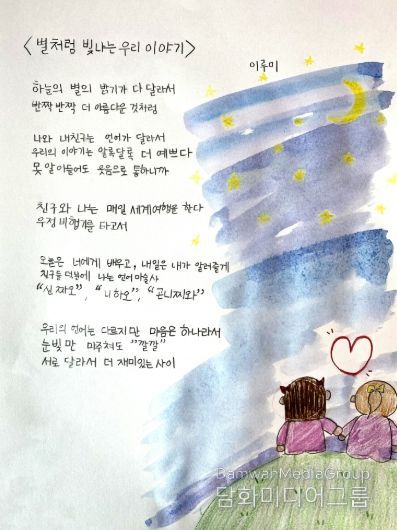 <별처럼 빛나는 우리 이야기>
이루미
하늘의 별의 밝기가 다 달라서
반짝 반짝 더 아름다운 것처럼
나와 내친구는 언어가 달라서
우리의 이야기는 알록달록 더 예쁘다
못 알아들어도 웃음으로 통하니까
친구와 나는 매일 세계여행을 한다
우정 비행기를 타고서
오늘은 너에게 배우고, 내일은 내가 알려줄게
친구들 덕분에 나는 언어마술사
"신짜오", "니하오", "곤니찌와"
우리의 언어는 다르지만 마음은 하나라서
눈빛만 마주쳐도 "깔깔"
서로 달라서 더 재미있는 사이
DamwahMediaGroup
담화미디어그룹